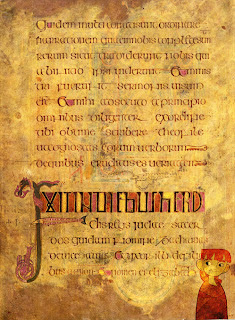 quidem multi conati sunt ordinare
narrationem quae in nobis completae sunt
rerum sicut tradiderunt nobis qui
ab initio ipsi uiderunt et ministri
fuerunt sermonis uisum
est et mihi assecuto a principio
omnibus diligenter ex ordine
tibi obtime scribere theophile
ut cognoscas eorum uerborum
de quibus eruditus es ueritatem
FUIT IN DIEBUS HERO
dis regis iudeae sacer
dos quidam nomine zacharias
de uice abia et uxor illi de filia
bus aaron et nomen eius elizabeth